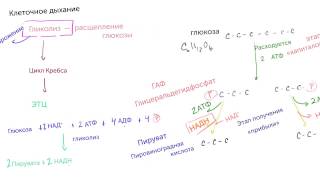 Клеточное дыхание
Гликолиз — расщепление
глюкозы
Цикл Кребса
ЭТЦ
глюкоза С-С-С-С-С-С
Расходуется
2 АТФ
ГАФ
Глицеральдегидфосфат
С-С-С Р
2 АТФ
НАДН
Этап получения
"прибыли"
Пируват
Пировиноградная
кислота С-С-С
С-С-С
Глюкоза + 2 АТФ + 4 АДФ + 4 Р
гликолиз
2 Пирувата + 2 НАДН